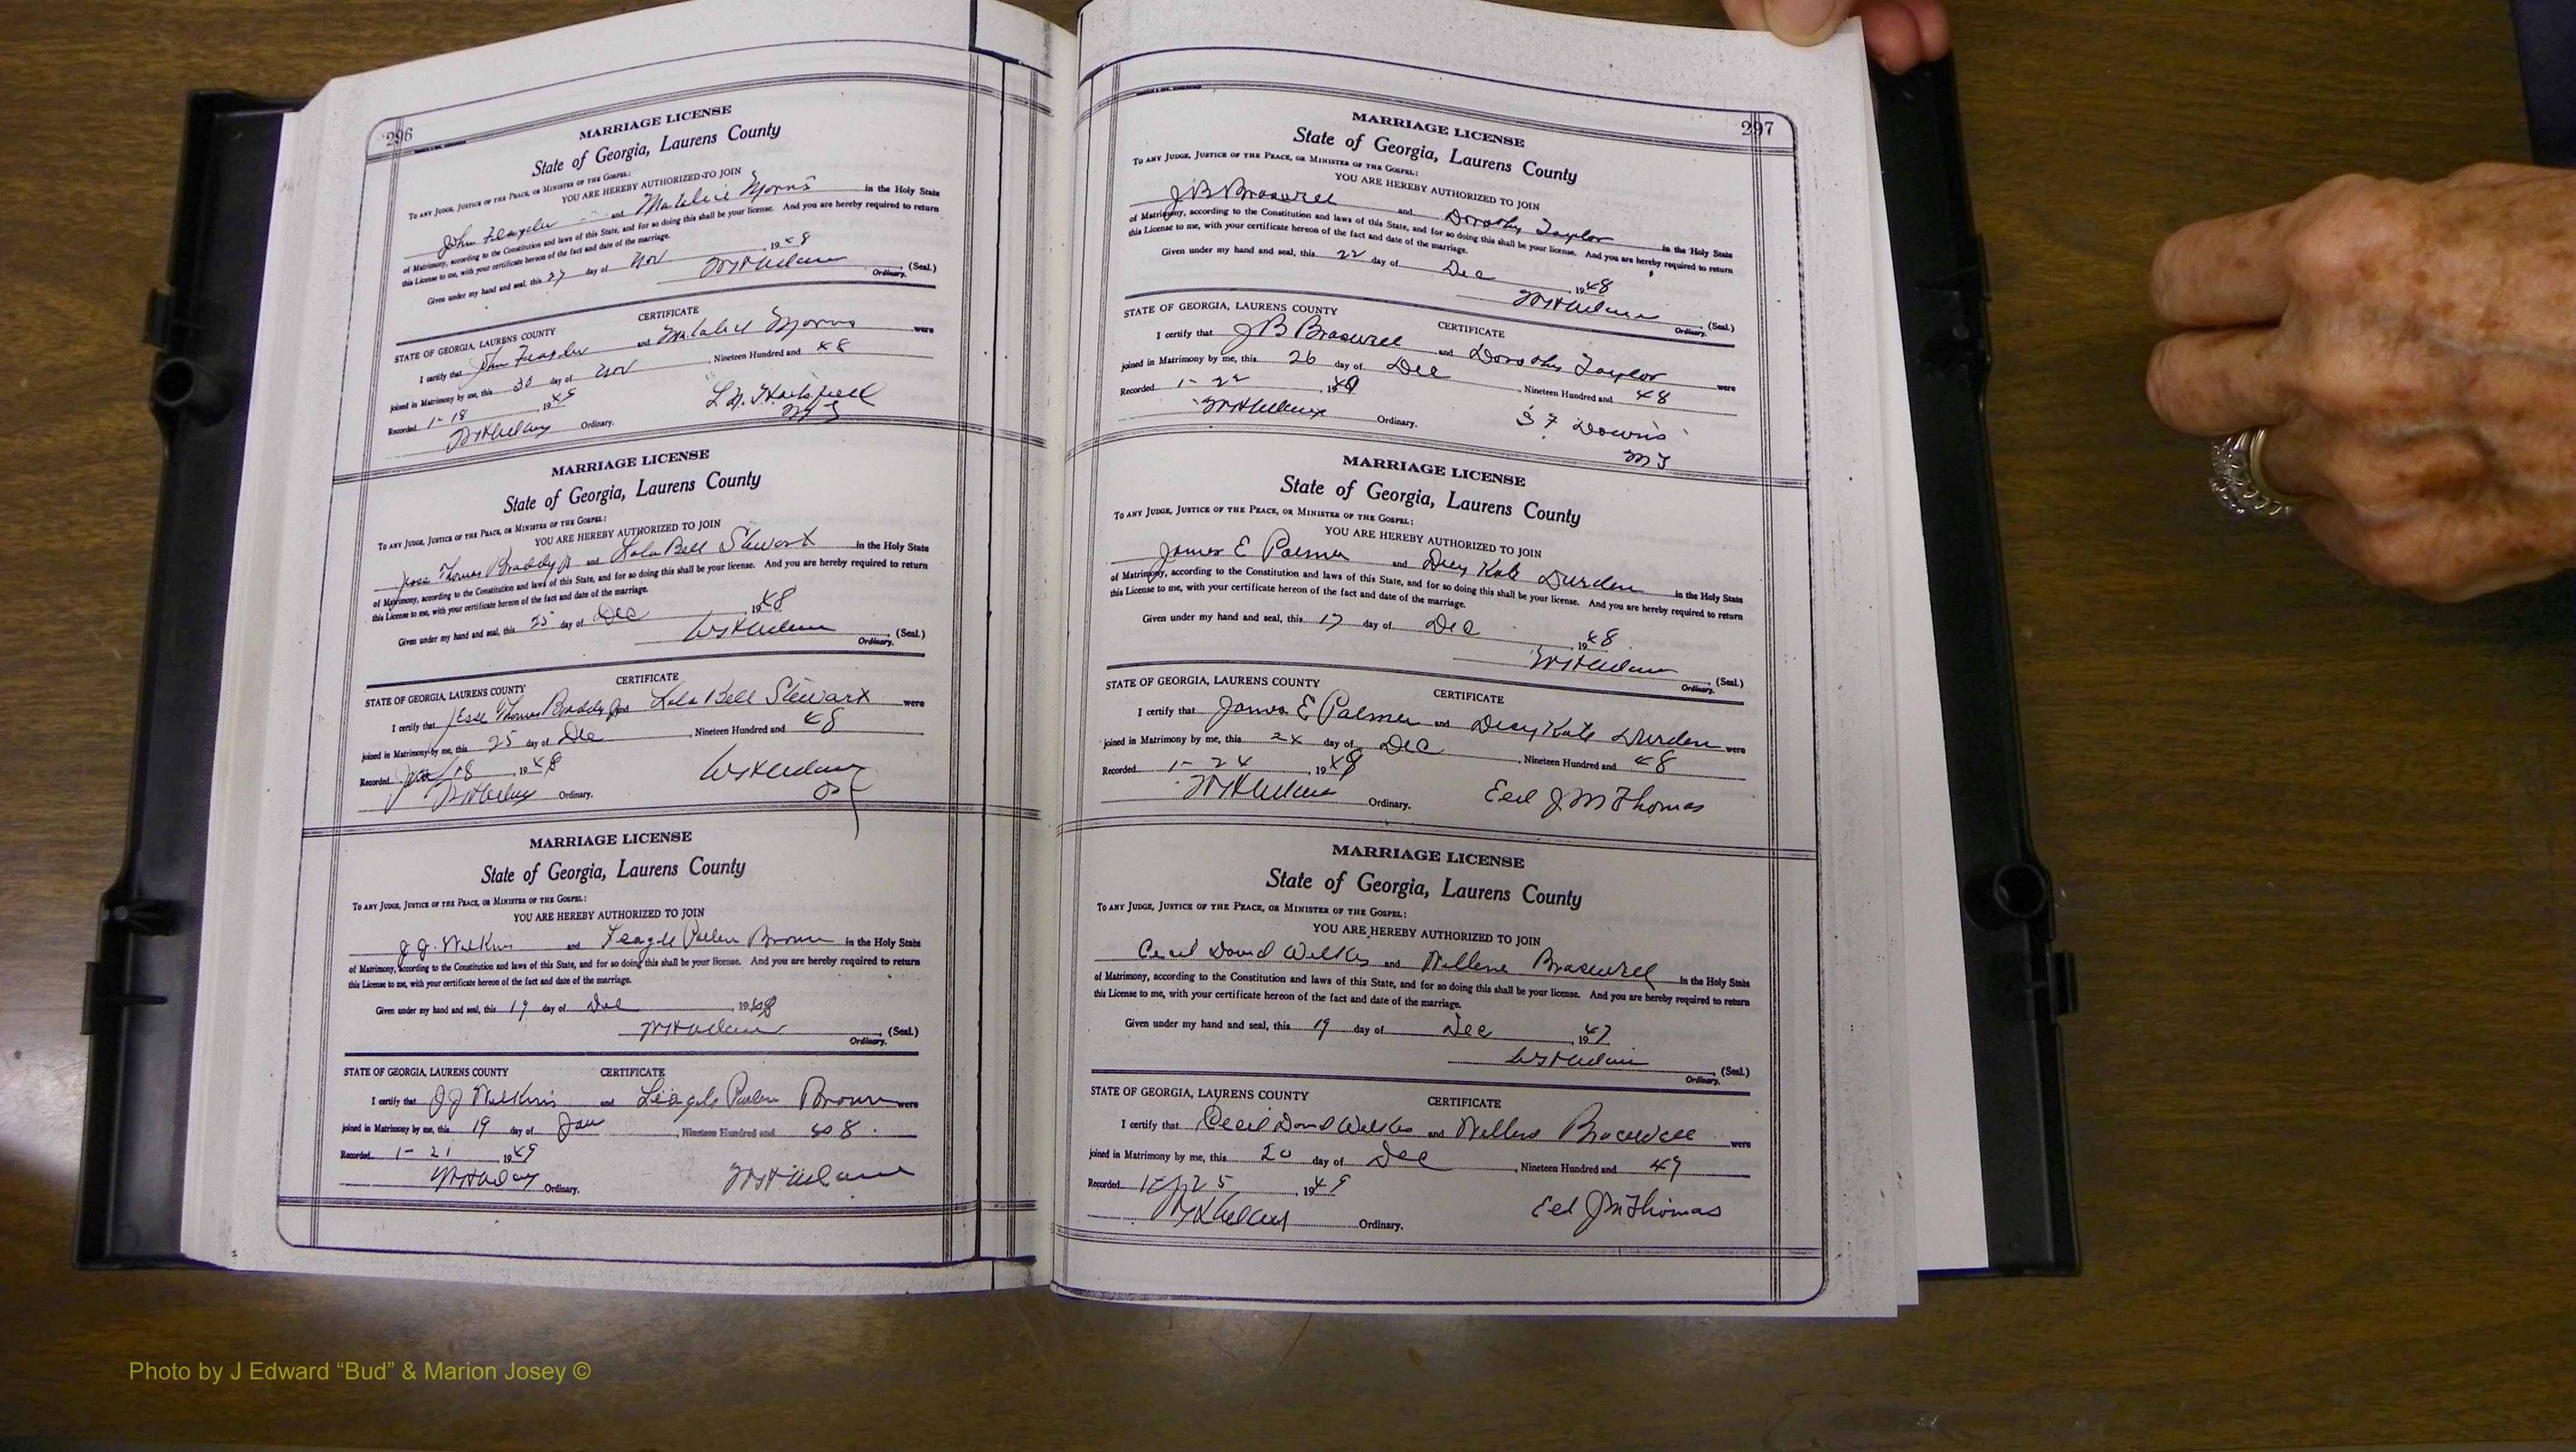 296
MARRIAGE LICENSE
State of Georgia, Laurens County
To any Judge, Justice of the Peace, or Minister of the Gospel:
YOU ARE HEREBY AUTHORIZED TO JOIN
John and Morris in the Holy State
of Matrimony, according to the Constitution and laws of this State, and for so doing this shall be your license. And you are hereby required to return
this License to me, with your certificate hereon of the fact and date of the marriage.
Given under my hand and seal, this 27 day of Nov, 1948
(Seal.)
Ordinary.
STATE OF GEORGIA, LAURENS COUNTY CERTIFICATE
I certify that John and Morris were
joined in Matrimony by me, this 30 day of Nov, Nineteen Hundred and 48
Recorded 1-18, 1949
Ordinary.
MARRIAGE LICENSE
State of Georgia, Laurens County
To any Judge, Justice of the Peace, or Minister of the Gospel:
YOU ARE HEREBY AUTHORIZED TO JOIN
Jesse Thomas Braddy Jr and Lola Bell Stewart in the Holy State
of Matrimony, according to the Constitution and laws of this State, and for so doing this shall be your license. And you are hereby required to return
this License to me, with your certificate hereon of the fact and date of the marriage.
Given under my hand and seal, this 25 day of Dec, 1948
(Seal.)
Ordinary.
STATE OF GEORGIA, LAURENS COUNTY CERTIFICATE
I certify that Jesse Thomas Braddy Jr and Lola Bell Stewart were
joined in Matrimony by me, this 25 day of Dec, Nineteen Hundred and 48
Recorded 18, 19
Ordinary.
MARRIAGE LICENSE
State of Georgia, Laurens County
To any Judge, Justice of the Peace, or Minister of the Gospel:
YOU ARE HEREBY AUTHORIZED TO JOIN
J.J. Wilkins and Brown in the Holy State
of Matrimony, according to the Constitution and laws of this State, and for so doing this shall be your license. And you are hereby required to return
this License to me, with your certificate hereon of the fact and date of the marriage.
Given under my hand and seal, this 19 day of Dec, 1948
(Seal.)
Ordinary.
STATE OF GEORGIA, LAURENS COUNTY CERTIFICATE
I certify that J J Wilkins and Brown were
joined in Matrimony by me, this 19 day of Jan, Nineteen Hundred and
Recorded 1-21, 1949
Ordinary.
297
MARRIAGE LICENSE
State of Georgia, Laurens County
To any Judge, Justice of the Peace, or Minister of the Gospel:
YOU ARE HEREBY AUTHORIZED TO JOIN
J B Braswell and Dorothy Taylor in the Holy State
of Matrimony, according to the Constitution and laws of this State, and for so doing this shall be your license. And you are hereby required to return
this License to me, with your certificate hereon of the fact and date of the marriage.
Given under my hand and seal, this 22 day of Dec, 1948
(Seal.)
Ordinary.
STATE OF GEORGIA, LAURENS COUNTY CERTIFICATE
I certify that J B Braswell and Dorothy Taylor were
joined in Matrimony by me, this 26 day of Dec, Nineteen Hundred and 48
Recorded 1-22, 1949
Ordinary.
MARRIAGE LICENSE
State of Georgia, Laurens County
To any Judge, Justice of the Peace, or Minister of the Gospel:
YOU ARE HEREBY AUTHORIZED TO JOIN
James E Palmer and Kate Durden in the Holy State
of Matrimony, according to the Constitution and laws of this State, and for so doing this shall be your license. And you are hereby required to return
this License to me, with your certificate hereon of the fact and date of the marriage.
Given under my hand and seal, this 17 day of Dec, 1948
(Seal.)
Ordinary.
STATE OF GEORGIA, LAURENS COUNTY CERTIFICATE
I certify that James E Palmer and Kate Durden were
joined in Matrimony by me, this 24 day of Dec, Nineteen Hundred and 48
Recorded 1-24, 1949
Ordinary. J M Thomas
MARRIAGE LICENSE
State of Georgia, Laurens County
To any Judge, Justice of the Peace, or Minister of the Gospel:
YOU ARE HEREBY AUTHORIZED TO JOIN
Cecil David Wilkes and Willene Braswell in the Holy State
of Matrimony, according to the Constitution and laws of this State, and for so doing this shall be your license. And you are hereby required to return
this License to me, with your certificate hereon of the fact and date of the marriage.
Given under my hand and seal, this 19 day of Dec, 1947
(Seal.)
Ordinary.
STATE OF GEORGIA, LAURENS COUNTY CERTIFICATE
I certify that Cecil David Wilkes and were
joined in Matrimony by me, this 20 day of Dec, Nineteen Hundred and 47
Recorded 25, 1949
J M Thomas
Ordinary.
Photo by J Edward “Bud” & Marion Josey ©